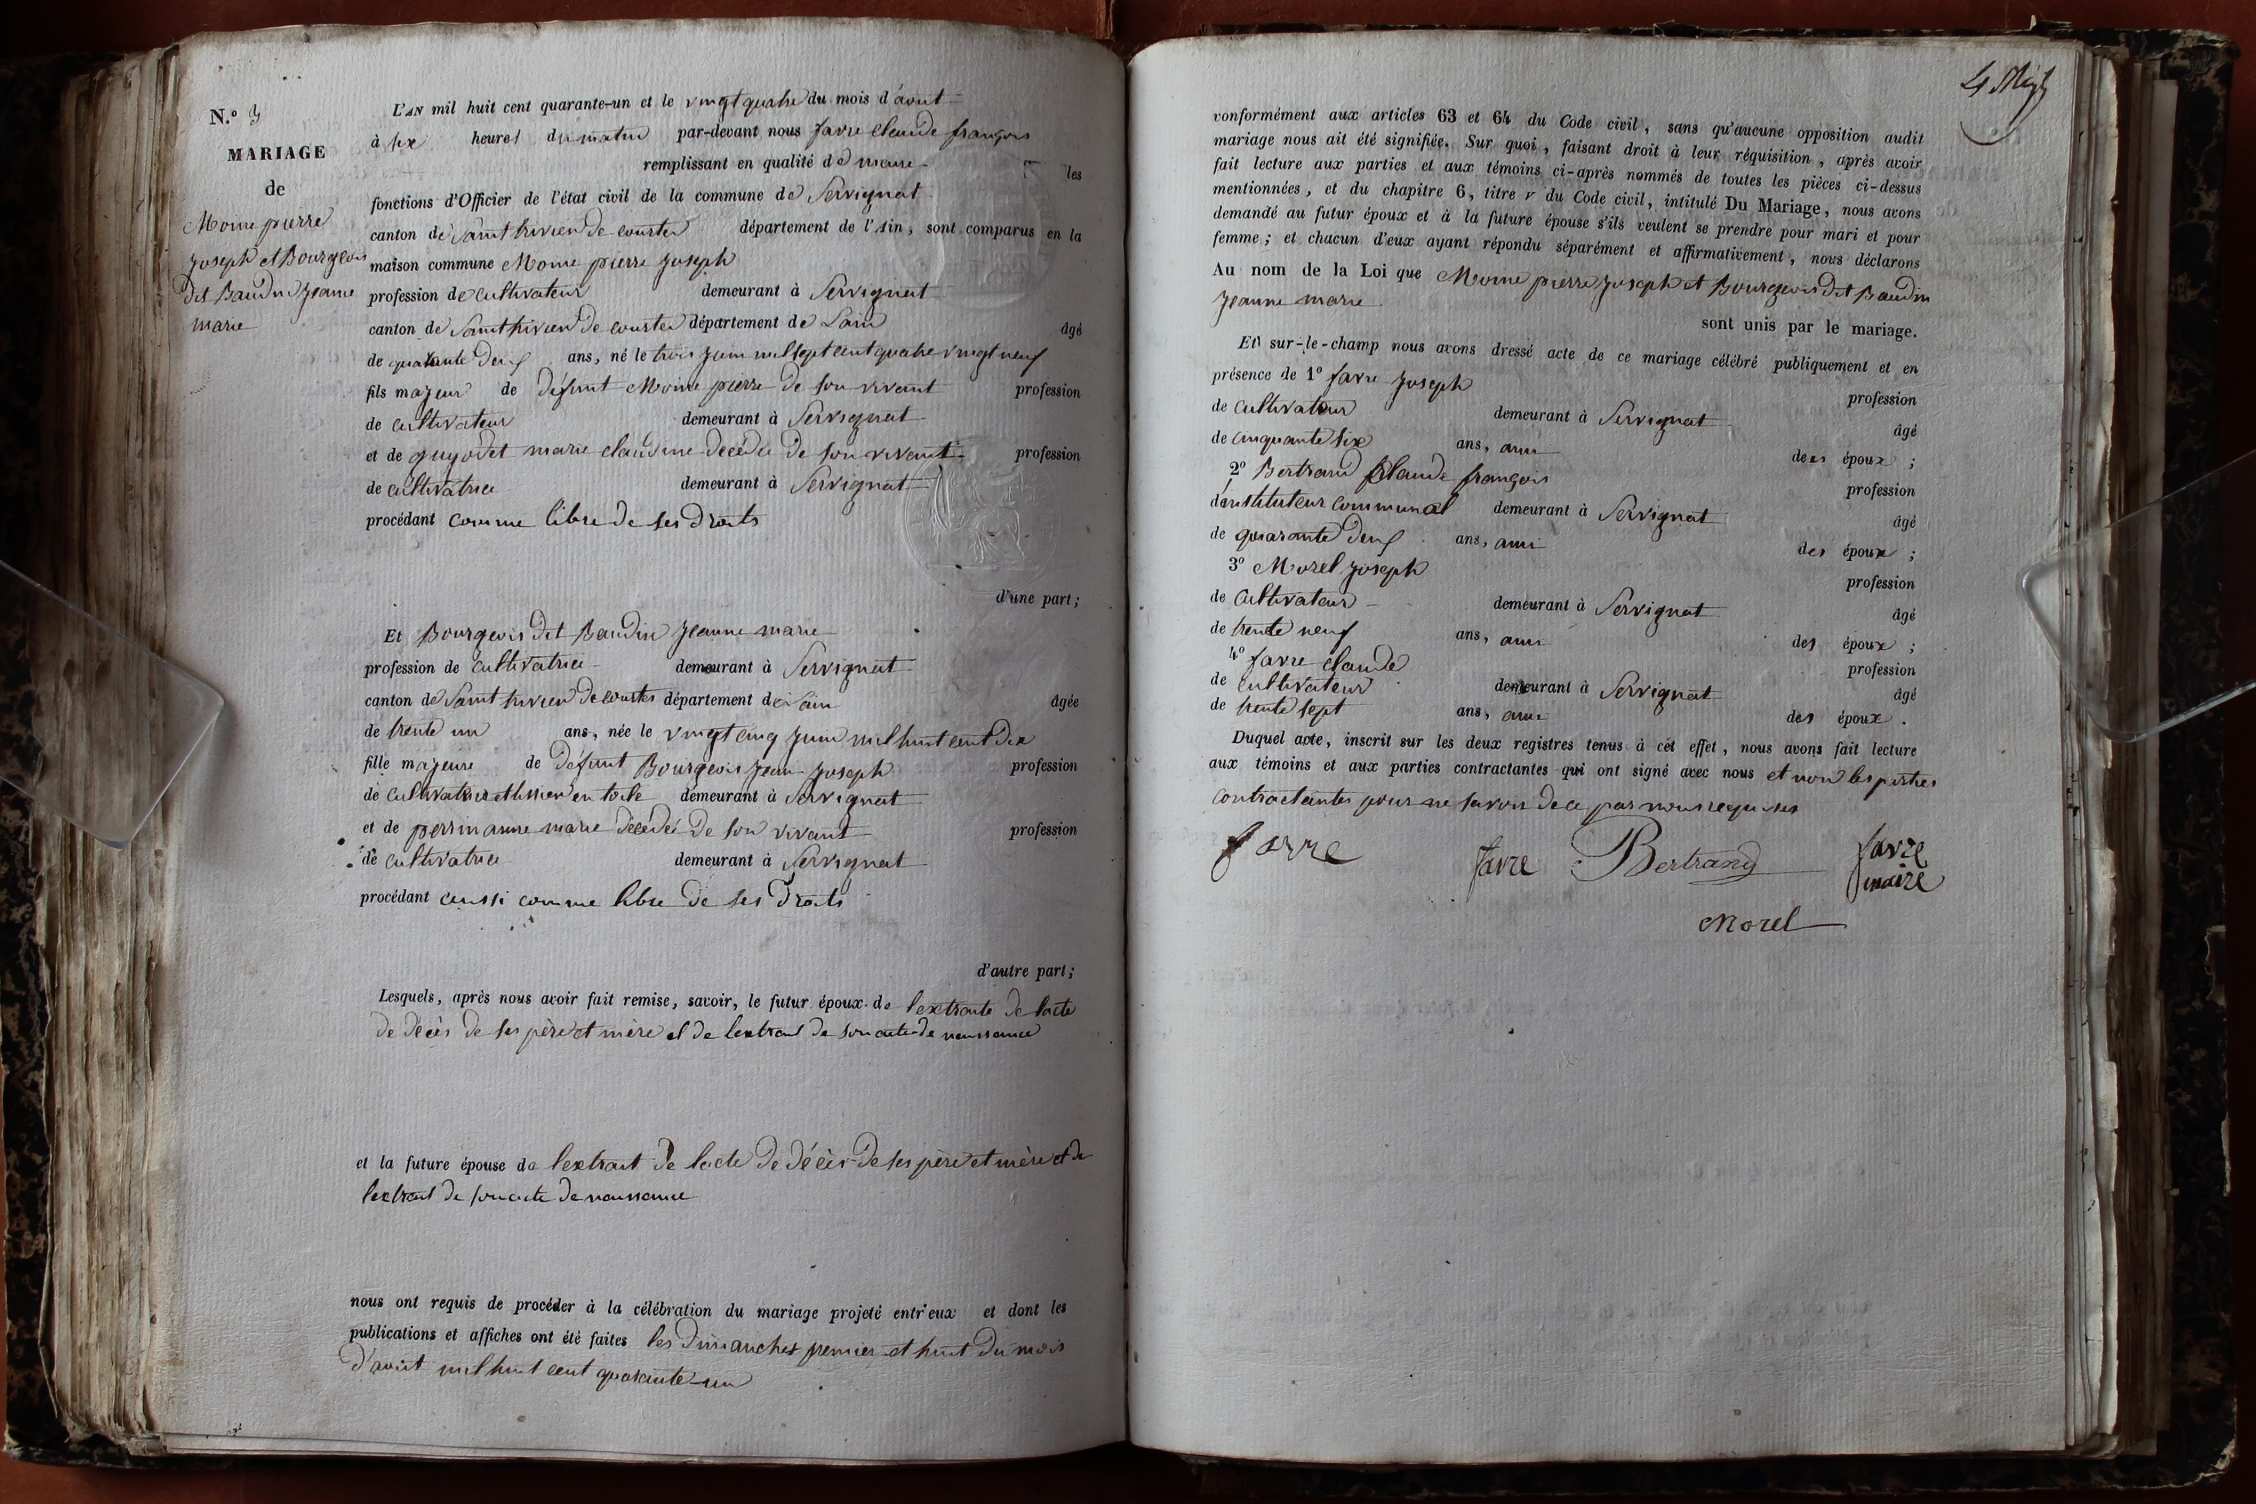 N.º 3
MARIAGE
de
Moine pierre
joseph et Bourgeois
dit Baudin jeanne
marie
L'AN mil huit cent quarante-un et le vingt quatre du mois d'avout
à six heures du matin par-devant nous favre claude françois
remplissant en qualité de maire les
fonctions d'Officier de l'état civil de la commune de Servignat
canton de Saint trivier de courtes département de l'Ain, sont comparus en la
maison commune Moine pierre joseph
profession de cultivateur demeurant à Servignat
canton de Saint trivier de courtes département de Lain âgé
de quarante deux ans, né le trois juin mil sept cent quatre vingt neuf
fils majeur de défunt Moine pierre de son vivant profession
de cultivateur demeurant à Servignat
et de guyodet marie claudine décédée de son vivant profession
de cultivatrice demeurant à Servignat
procédant comme libre de ses droits
d'une part;
Et Bourgeois dit Baudin jeanne marie
profession de cultivatrice demeurant à Servignat
canton de Saint trivier de courtes département de Lain âgée
de trente un ans, née le vingt cinq juin mil huit cent dix
fille majeure de défunt Bourgeois jean joseph profession
de cultivateur et tissier en toile demeurant à Servignat
et de perrin anne marie décédée de son vivant profession
de cultivatrice demeurant à Servignat
procédant aussi comme libre de ses droits
d'autre part;
Lesquels, après nous avoir fait remise, savoir, le futur époux de l'extraite de lacte
de décès de ses père et mère et de lextrait de son acte de naissance
et la future épouse de lextrait de lacte de décès de ses père et mère et de
lextrait de son acte de naissance
nous ont requis de procéder à la célébration du mariage projeté entr'eux et dont les
publications et affiches ont été faites les dimanches premier et huit du mois
d'avout mil huit cent quarante un
conformément aux articles 63 et 64 du Code civil, sans qu'aucune opposition audit
mariage nous ait été signifiée. Sur quoi, faisant droit à leur réquisition, après avoir
fait lecture aux parties et aux témoins ci-après nommés de toutes les pièces ci-dessus
mentionnées, et du chapitre 6, titre v du Code civil, intitulé Du Mariage, nous avons
demandé au futur époux et à la future épouse s'ils veulent se prendre pour mari et pour
femme; et chacun d'eux ayant répondu séparément et affirmativement, nous déclarons
Au nom de la Loi que Moine pierre joseph et Bourgeois dit Baudin
jeanne marie
sont unis par le mariage.
Et sur-le-champ nous avons dressé acte de ce mariage célébré publiquement et en
présence de 1º favre joseph profession
de cultivateur demeurant à Servignat âgé
de cinquante six ans, ami des époux;
2º Bertrand claude françois profession
d'instituteur communal demeurant à Servignat âgé
de quarante deux ans, ami des époux;
3º Morel joseph profession
de cultivateur demeurant à Servignat âgé
de trente neuf ans, ami des époux;
4º favre claude profession
de cultivateur demeurant à Servignat âgé
de trente sept ans, ami des époux.
Duquel acte, inscrit sur les deux registres tenus à cet effet, nous avons fait lecture
aux témoins et aux parties contractantes qui ont signé avec nous et non les parties
contractantes pour ne savoir de ce par nous requises
favre favre Bertrand favre
maire
Morel